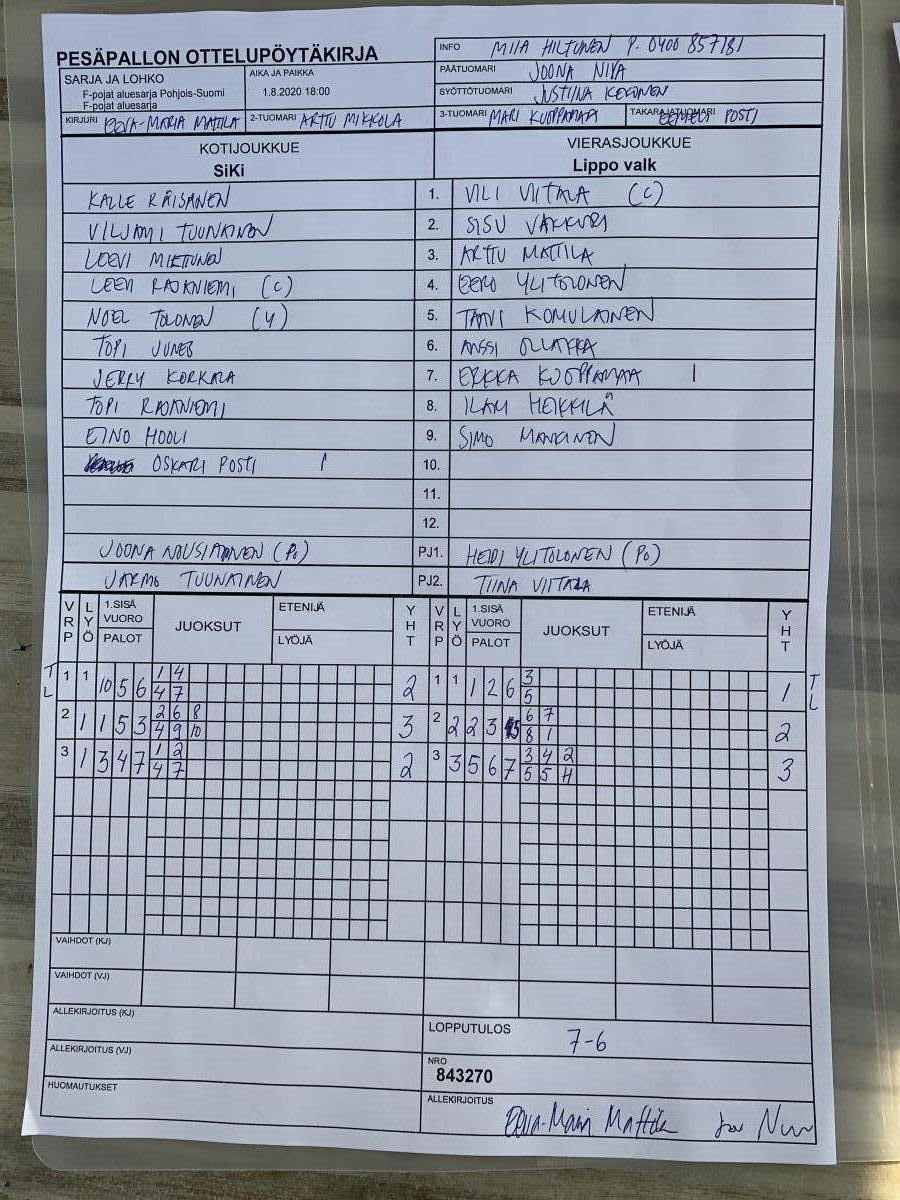 PESÄPALLON OTTELUPÖYTÄKIRJA
INFO MIIA HILTUNEN P. 0400 857181
PÄÄTUOMARI JOONA NIVA
SARJA JA LOHKO
F-pojat aluesarja Pohjois-Suomi
F-pojat aluesarja
AIKA JA PAIKKA
1.8.2020 18:00
SYÖTTÖTUOMARI JUSTIINA KEKONEN
KIRJURI EEVA-MARIA MATTILA 2-TUOMARI ARTTU MIKKOLA 3-TUOMARI MARI KUOPPAMAA TAKARAJATUOMARI POSTI
KOTIJOUKKUE VIERASJOUKKUE
SiKi Lippo valk
KALLE RÄISÄNEN 1. VILI VIITALA (C)
VILJAMI TUUNAINEN 2. SISU VAKKURI
LEEVI MIETTUNEN 3. ARTTU MATTILA
LEEVI RAJANIEMI (C) 4. EERO YLITOLONEN
NOEL TOLONEN (4) 5. TAAVI KOMULAINEN
TOPI 6. ANSSI
JERRY KORKALA 7. ERKKA KUOPPAMAA I
TOPI RAJANIEMI 8. HEIKKILÄ
EINO HOOLI 9. SIMO MANNINEN
OSKARI POSTI I 10.
11.
12.
JOONA NOUSIAINEN (Po) PJ1. HEIDI YLITOLONEN (Po)
JARMO TUUNAINEN PJ2. TIINA VIITALA
VRP LYÖ 1.SISÄ VUORO PALOT JUOKSUT ETENIJÄ LYÖJÄ YHT VRP LYÖ 1.SISÄ VUORO PALOT JUOKSUT ETENIJÄ LYÖJÄ YHT
TL 1 1 10 5 6 1 4 2 1 1 1 2 6 3 1 TL
4 7 5
2 1 1 5 3 2 6 8 3 2 2 2 3 6 7 2
4 9 10 8 1
3 1 3 4 7 1 2 2 3 3 5 6 7 3 4 2 3
4 7 5 5 H
VAIHDOT (KJ)
VAIHDOT (VJ)
ALLEKIRJOITUS (KJ)
LOPPUTULOS 7-6
ALLEKIRJOITUS (VJ)
NRO
843270
HUOMAUTUKSET
ALLEKIRJOITUS
Eeva-Maria Mattila